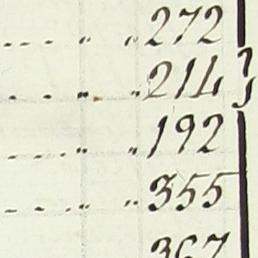 ... " " 272
... " " 214
... " " 192
... " " 355
367